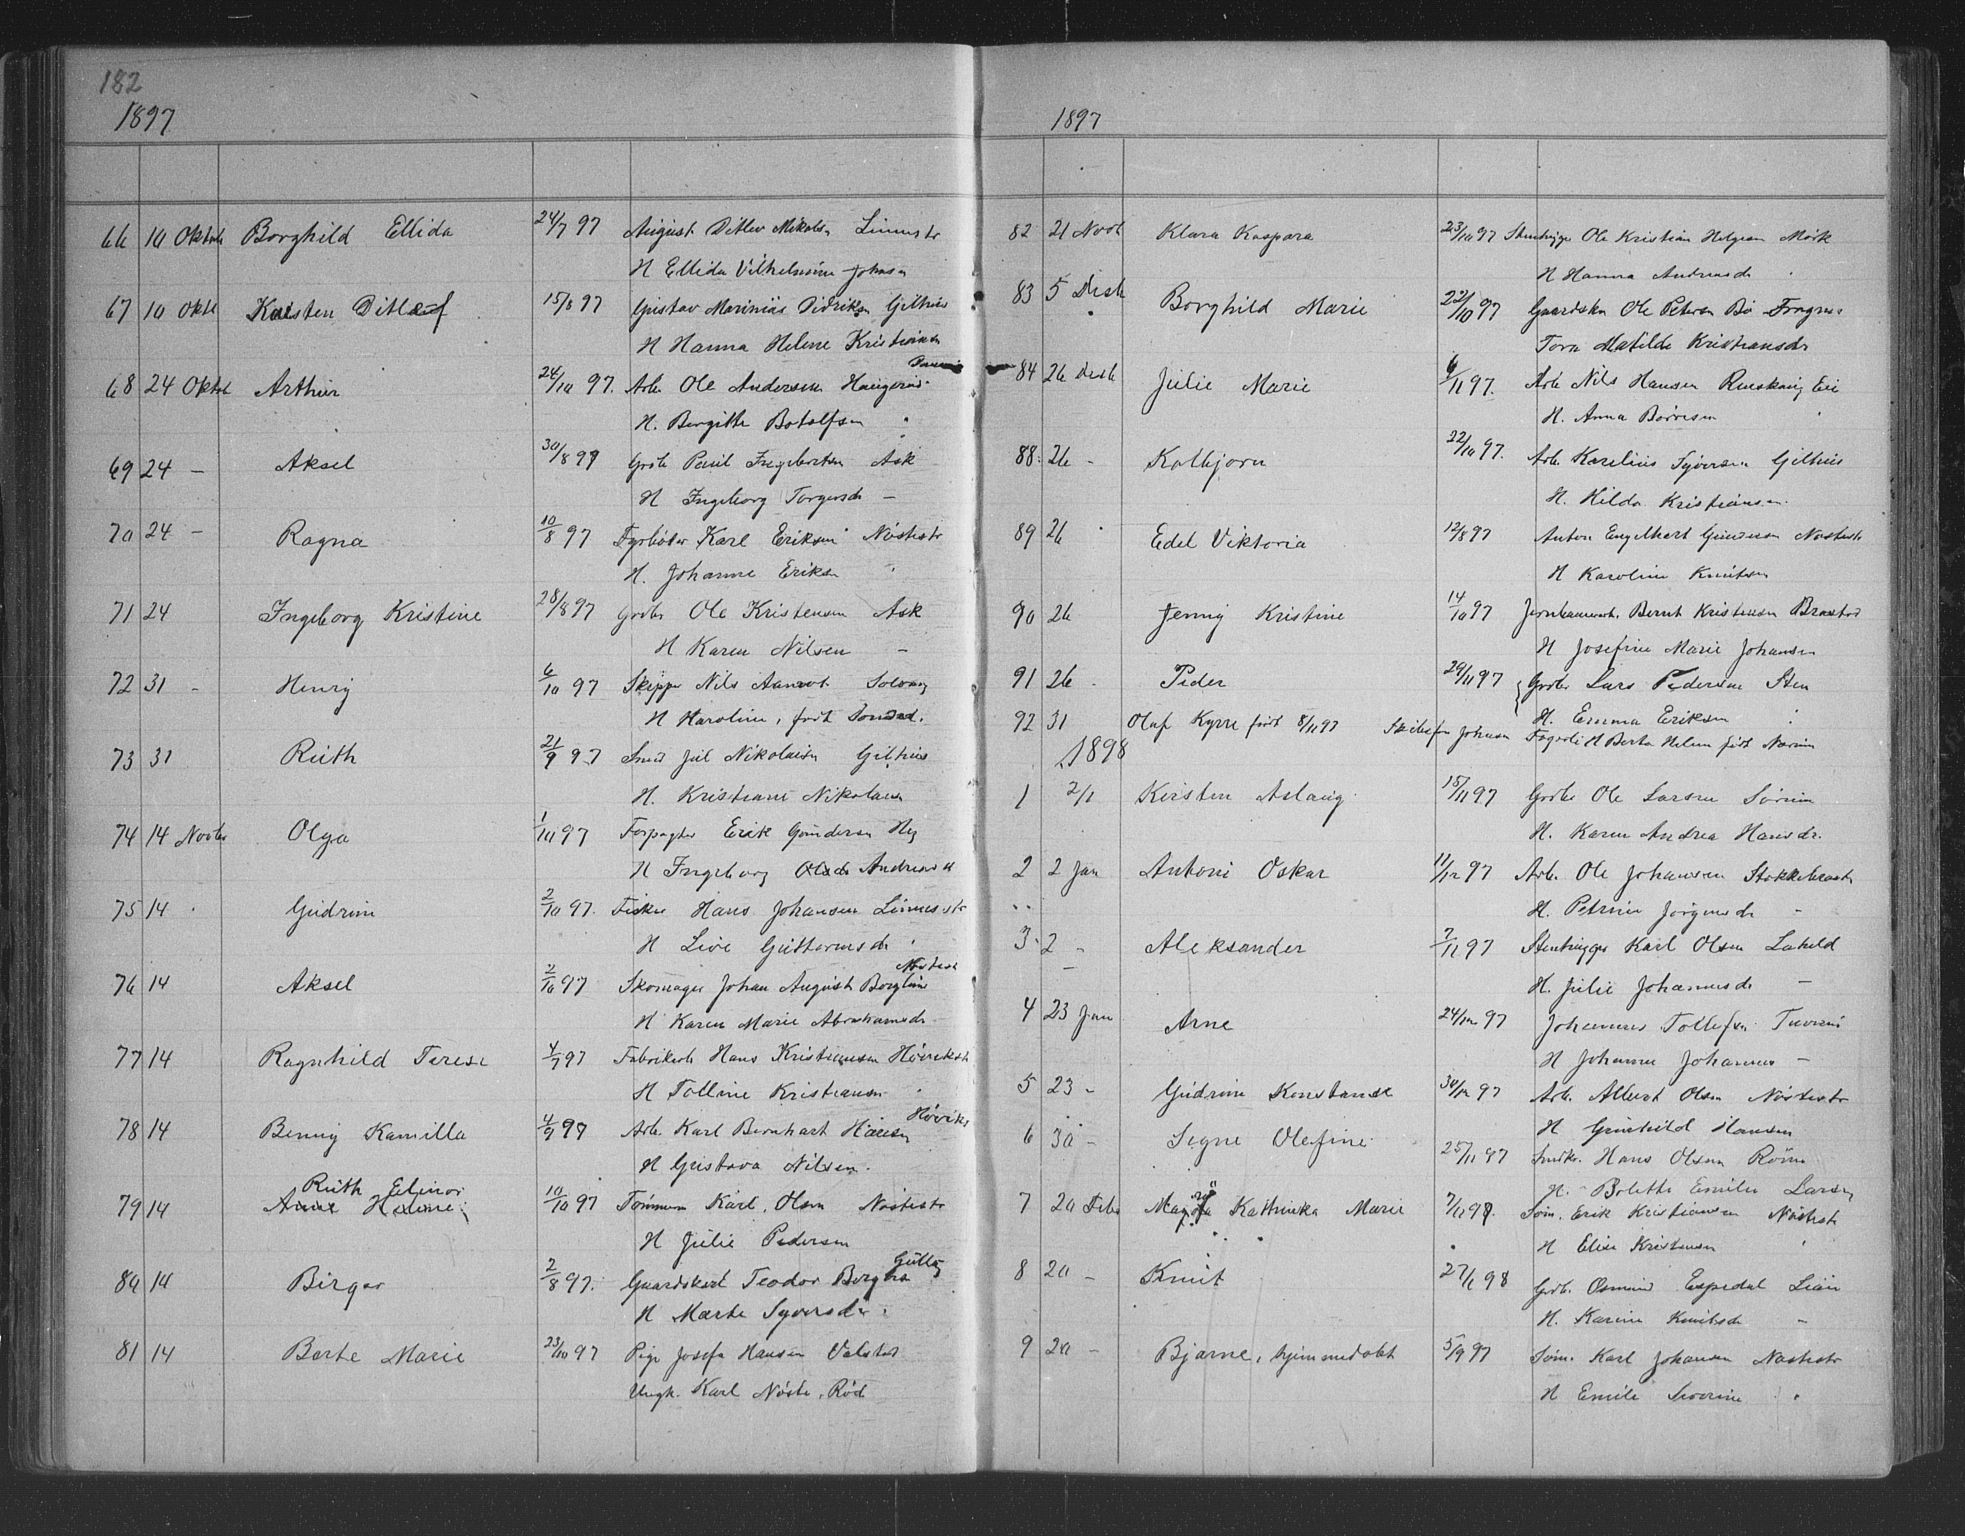 182
1897
66 10 Oktob Borghild Ellida 24/7 97 August Ditlev Nikolsn Linnestr
H Ellida Vilhelmine Johnsn
67 10 Oktb Karsten Ditlef 15/8 97 Gustav Marinius Didriksn Gilhus
H Hanna Helene Kristiansn
68 24 Oktob Arthur 24/10 97. Arb. Ole Andersen Haugerud
H. Bergitte Botolfsen "
69 24 – Aksel 30/8 97 Grdb Paul Ingebretsen Ask
H Ingeborg Torgersdr –
70 24 – Ragna 10/8 97 Fyrböter Karl Eriksen Nöstestr
H. Johanne Eriksn
71 24 Ingeborg Kristine 28/8 97 Grdbr Ole Kristensen Ask
H Karen Nilsen –
72 31 – Henry 6/10 97 Skipper Nils Solvang
H Karoline, födt
73 31 Ruth 21/9 97 Smed Jul Nikolaisen Gilhus
H. Kristiane Nikolaisn
74 14 Novbr Olga 1/10 97 Forpagter Erik Gundersn Heg
H Ingeborg Olsdr Andreasdt
75 14 Gudrun 2/10 97. Fisker Hans Johansen Linnesstr
H Live Guttormsdr "
76 14 Aksel 2/10 97 Skomager Johan August Borglund Nöstest
H Karen Marie Abrahamsdr
77 14 Ragnhild Terese 4/7 97 Fabrikarb Hans Kristiansen Hövikstr
H Tolline Kristiansen "
78 14 Benny Kamilla 4/9 97 Arb. Karl Bernhart Hansen Hövikst
H Gustava Nilsen.
Ruth Elinor
79 14 Anne Helene 10/10 97 Tömmerm Karl. Olsen Nöstestr
H Julie Pedersen
80 14 Birger 2/8 97. Gaardskarl Teodor Berghn Gullaug
H Marte Syversdr
81 14 Berte Marie 23/10 97 Pige Josefa Hansen Valstad
Ungk. Karl Nöste, Röd
1897
82 21 Novb Klara Kaspara 23/10 97 Stenhugger Ole Kristian Helgesen Mörk
H Hanna Andreasdr "
83 5 Desb Borghild Marie 22/10 97 Gaardskr Ole Petersen Bö Frogner
Tora Matilde Kristiansdr
84 26 Desb Julie Marie 6/11 97. Arb Nils Hansen Eie
H. Anna Börresen "
88 26 – Kolbjorn 22/10 97. Arb. Karelius Syversen Gilhus
H. Hilda Kristiansen.
89 26 Edel Viktoria 12/8 97 Anton Engelhart Gundersen Nöstestr
H Karoline Knutsen
90 26 Jenny Kristine 14/10 97 Bernt Kristensen
H Josefine Marie Johansen
91 26 – Peder 29/11 97 Grdbr Lars Pedersen Sten
H. Emma Eriksen "
92 31 Olaf Kyrre födt 8/11 97 Johnsen Fagerli H Berta Helene födt
1898
1 2/1 Kirsten Aslaug 15/11 97 Grdbr Ole Larsen Sörum
H. Karen Andrea Hansdr.
2 2 Jan Antoni Oskar 11/12 97 Arb. Ole Johansen Stokkebrastn
H. Petrine Jörgensdr –
3 2 – Aleksander 7/11 97 Stenhugger Karl Olsen Laheld
H. Julie Johannesdr –
4 23 Jan Arne 24/12 97 Johannes Tollefsn Tverrud
H Johanne Johannes –
5 23 – Gudrun Konstance 30/12 97 Arb. Albert Olsen Nöstestr
H Gunhild Hansen
6 30 – Signe Olefine 25/11 97 Smdkr. Hans Olsen
H. Bolette Emilie Larsen
7 20 Febr Katrinka Marie 7/12 97. Söm. Erik Kristiansen Nöstestr
H Elise Kristensen "
8 20 – Knut 27/1 98 Grdb. Osmund Espedal Lian
H. Karine Knutsdr –
9 20 – Bjarne, hjemmedöbt 5/9 97 Söm. Karl Johansen Nöstestr
H Emile Severine "